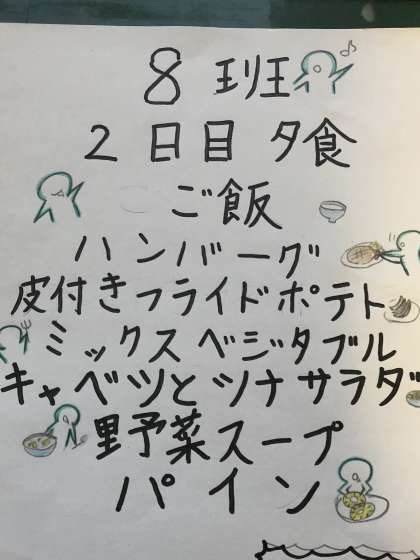 8 班
2 日目 夕食
ご飯
ハンバーグ
皮付きフライドポテト
ミックスベジタブル
キャベツとツナサラダ
野菜スープ
パイン